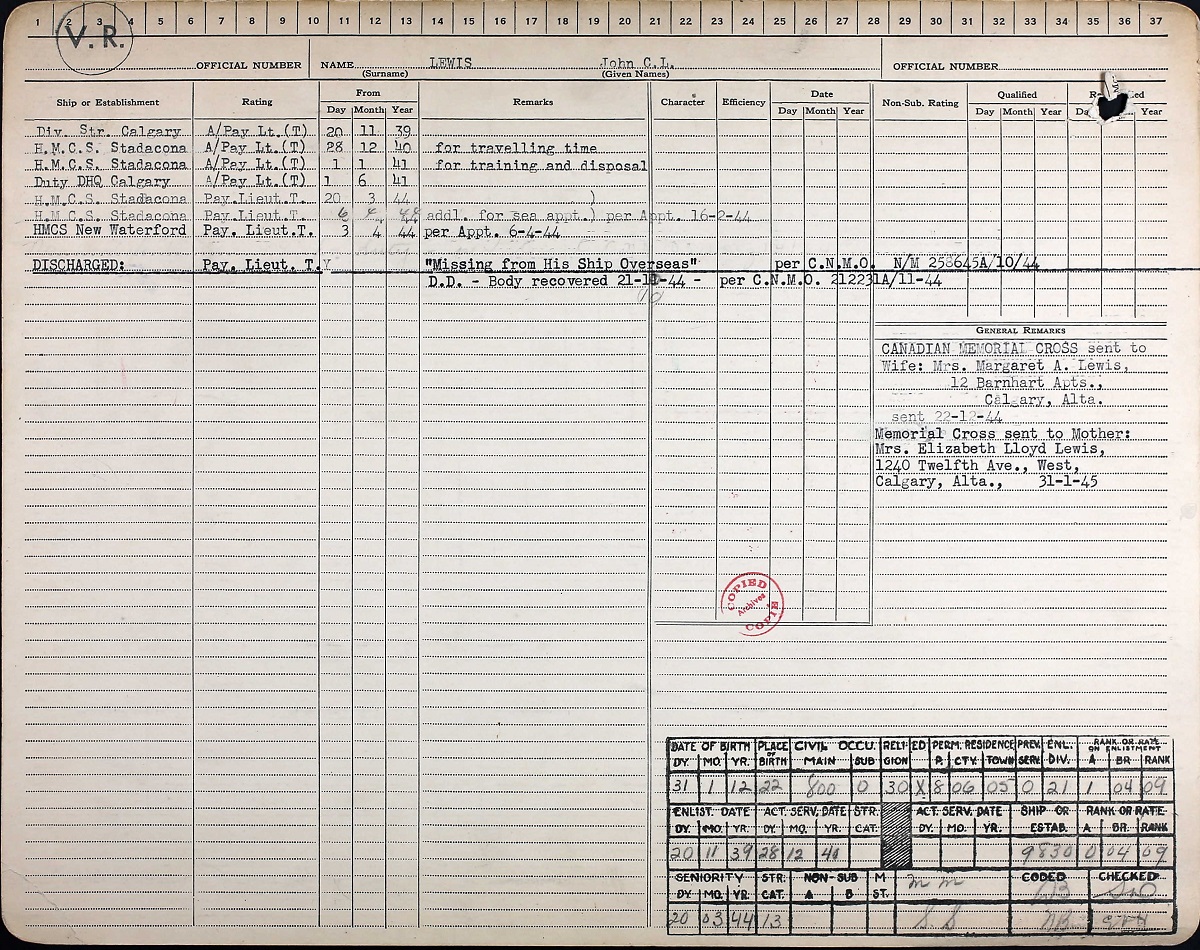 1 2 3 4 5 6 7 8 9 10 11 12 13 14 15 16 17 18 19 20 21 22 23 24 25 26 27 28 29 30 31 32 33 34 35 36 37
V.R.
OFFICIAL NUMBER NAME LEWIS John C.L. OFFICIAL NUMBER
(Surname) (Given Names)
Ship or Establishment Rating From Remarks Character Efficiency Date Non-Sub. Rating Qualified
Day Month Year Day Month Year Day Month Year Year
Div. Str. Calgary A/Pay Lt.(T) 20 11 39
H.M.C.S. Stadacona A/Pay Lt.(T) 28 12 40 for travelling time
H.M.C.S. Stadacona A/Pay Lt.(T) 1 1 41 for training and disposal
Duty DHQ Calgary A/Pay Lt.(T) 1 6 41
H.M.C.S. Stadacona Pay.Lieut.T. 20 3 44 )
H.M.C.S. Stadacona Pay.Lieut.T. 6 4 44 addl. for sea appt.) per Appt. 16-2-44
HMCS New Waterford Pay. Lieut.T. 3 4 44 per Appt. 6-4-44
DISCHARGED: Pay. Lieut. T. "Missing from His Ship Overseas" per C.N.M.O. N/M 258645A/10/44
D.D. - Body recovered 21-11-44 - per C.N.M.O. 212231A/11-44
10
GENERAL REMARKS
CANADIAN MEMORIAL CROSS sent to
Wife: Mrs. Margaret A. Lewis,
12 Barnhart Apts.,
Calgary, Alta.
sent 22-12-44
Memorial Cross sent to Mother:
Mrs. Elizabeth Lloyd Lewis,
1240 Twelfth Ave., West,
Calgary, Alta., 31-1-45
COPIED
Archives
COPIE
DATE OF BIRTH PLACE OF BIRTH CIVIL OCCU. RELIGION ED PERM. RESIDENCE PREV. SERV. ENL. DIV. RANK OR RATE ON ENLISTMENT
DY. MO. YR. MAIN SUB P. CTY. TOWN A BR RANK
31 1 12 22 800 0 30 X 8 06 05 0 21 1 04 09
ENLIST. DATE ACT. SERV. DATE STR. CAT. ACT. SERV. DATE SHIP OR ESTAB. RANK OR RATE
DY. MO. YR. DY. MO. YR. DY. MO. YR. A BR. RANK
20 11 39 28 12 40 9830 0 04 09
SENIORITY STR. CAT. NON-SUB M ST. m m CODED CHECKED
DY. MO. YR. A B
20 03 44 13 S S